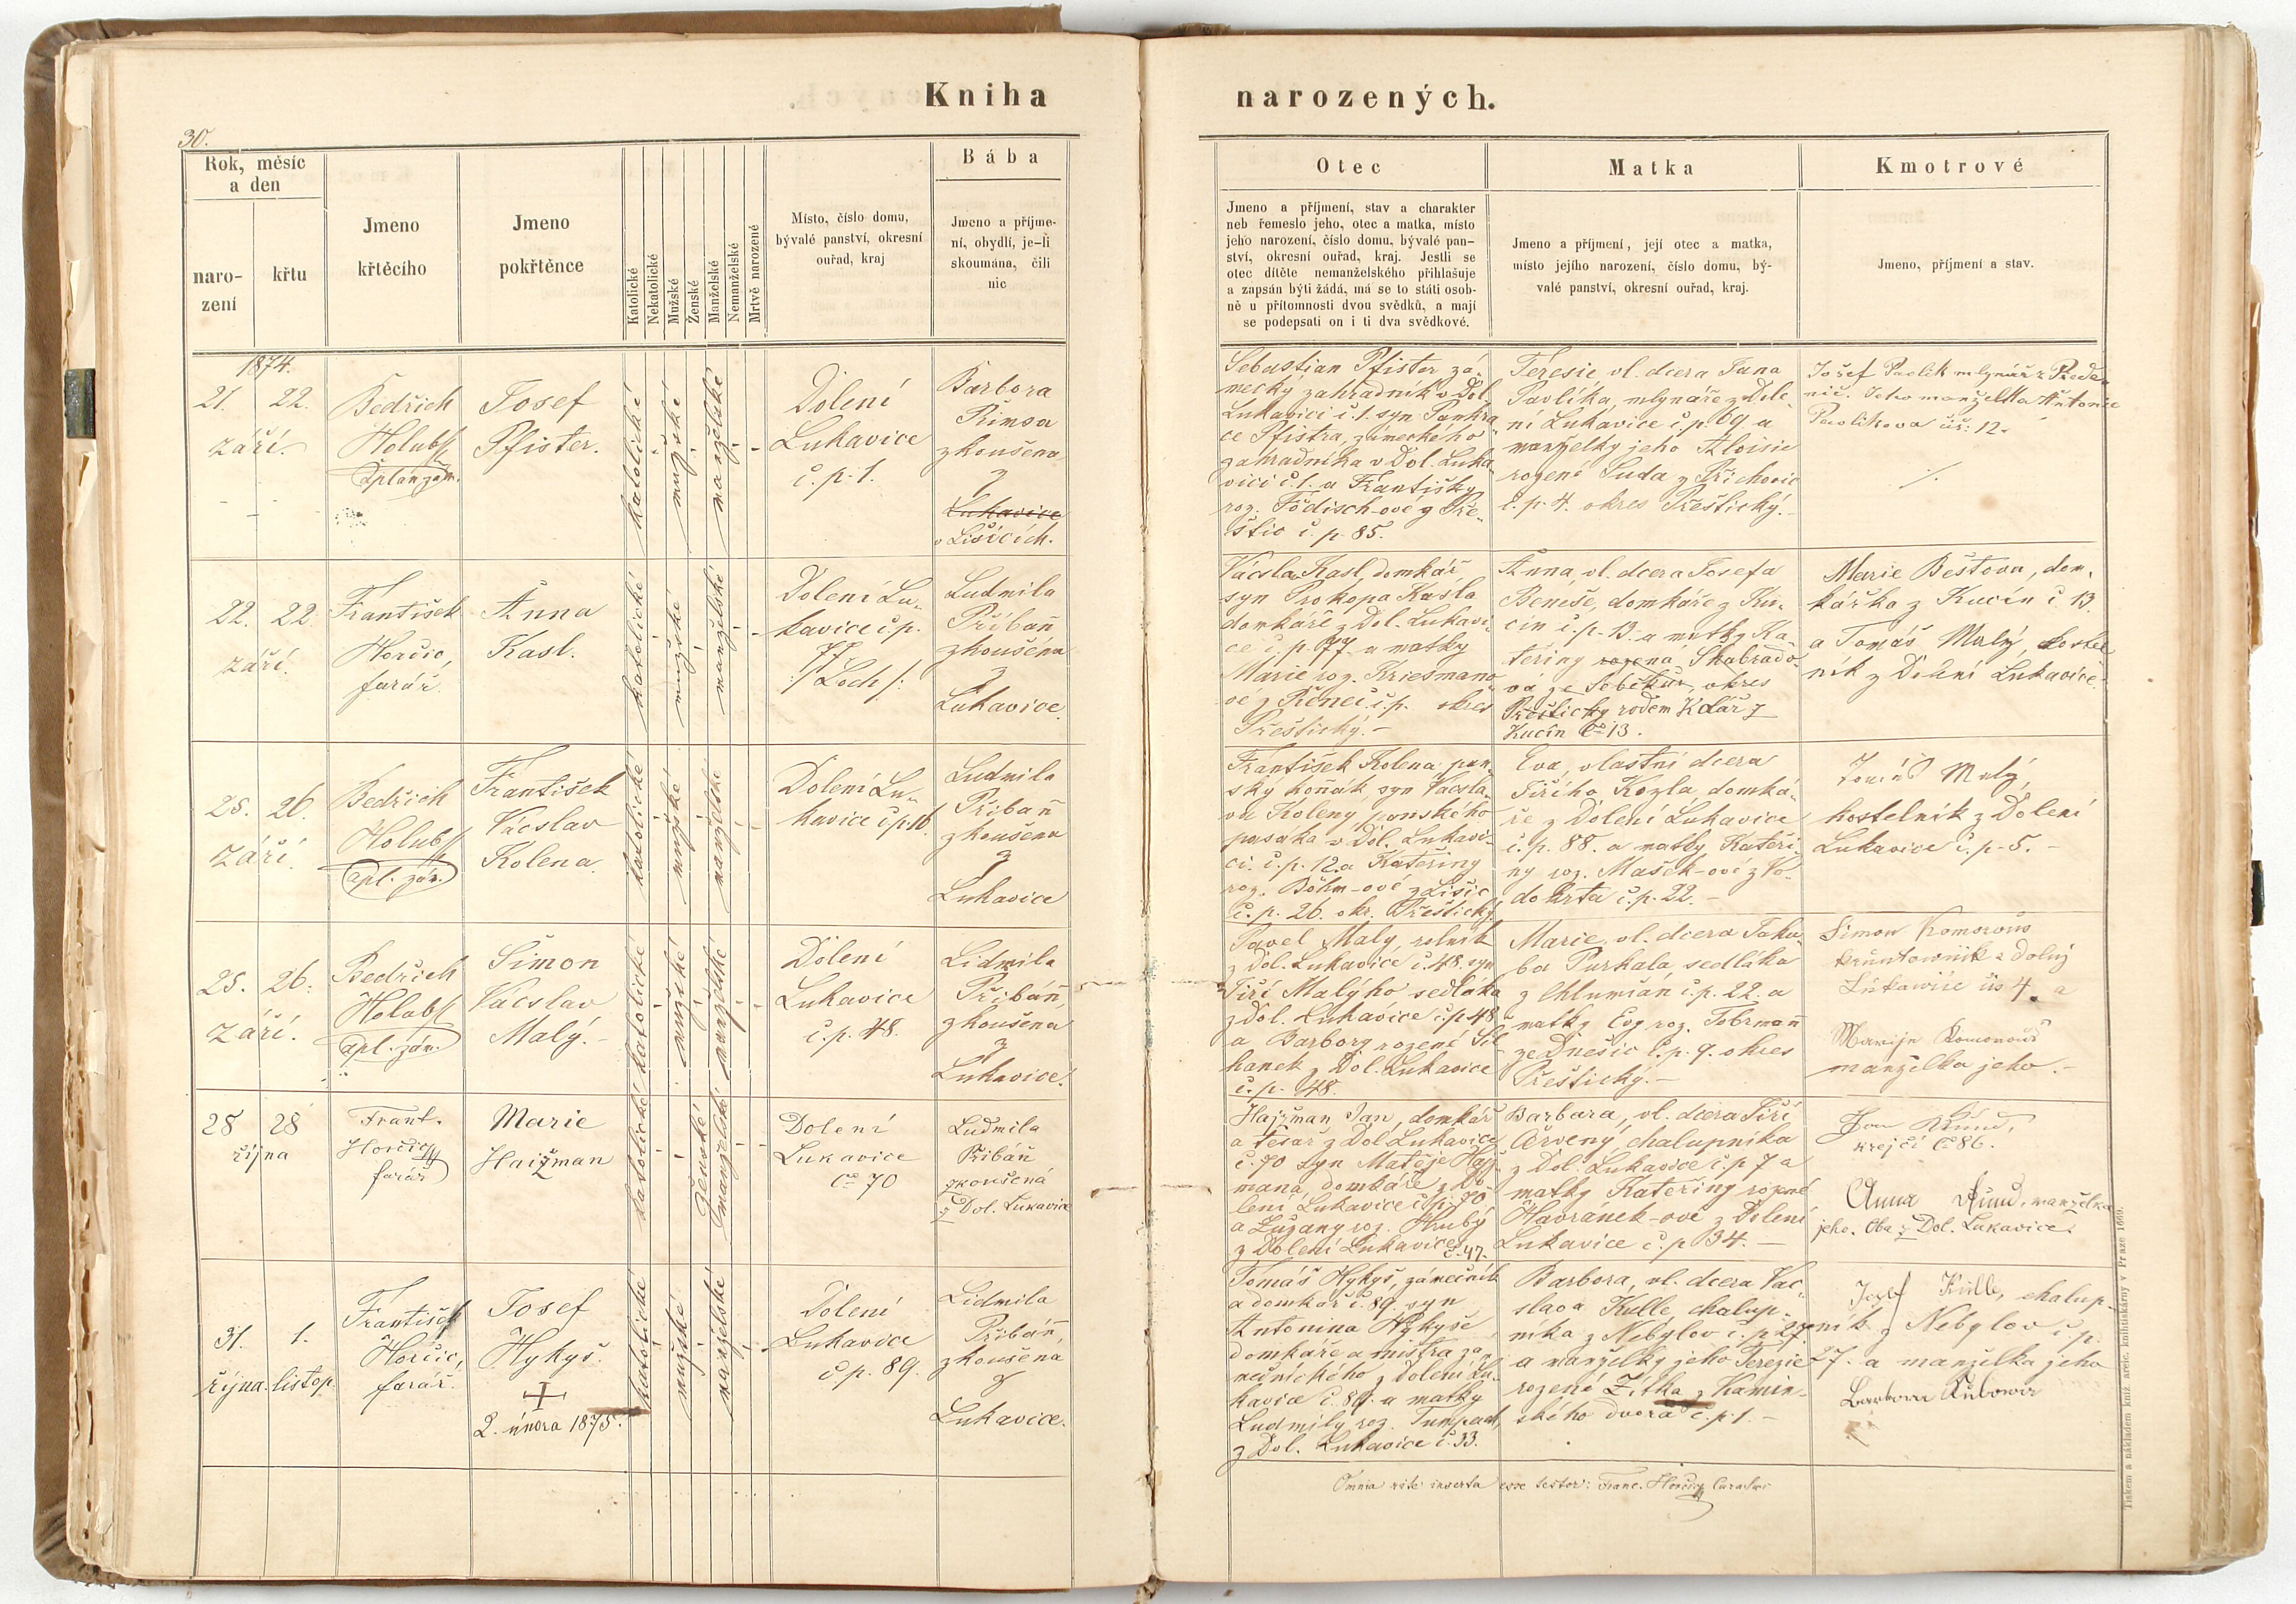 Kniha narozených.
30.
Rok, měsíc
a den
naro-
zení
křtu
Jmeno
křtěcího
Jmeno
pokřtěnce
Katolické
Nekatolické
Mužské
Ženské
Manželské
Nemanželské
Mrtvě narozené
Místo, číslo domu,
bývalé panství, okresní
ouřad, kraj
Bába
Jmeno a příjme-
ní, obydlí, je-li
skoumána, čili
nic
Otec
Jmeno a příjmení, stav a charakter
neb řemeslo jeho, otec a matka, místo
jeho narození, číslo domu, bývalé pan-
ství, okresní ouřad, kraj. Jestli se
otec dítěte nemanželského přihlašuje
a zapsán býti žádá, má se to státi osob-
ně u přítomnosti dvou svědků, a mají
se podepsati on i ti dva svědkové.
Matka
Jmeno a příjmení, její otec a matka,
místo jejího narození, číslo domu, bý-
valé panství, okresní ouřad, kraj.
Kmotrové
Jmeno, příjmení a stav.
1874.
21. 22.
září.
Bedřich
Holub
Josef
Pfister.
katolické
mužské
manželské
Dolení
Lukavice
č. p. 1.
Barbora
Rimsa
zkoušena
z
Lukavice
v Lišicích.
Sebastian Pfister zá-
mecký zahradník v Dol.
Lukavici č. 1. syn Pankra-
ce Pfistra, zámeckého
zahradníka v Dol. Luka-
vici č. 1. a Františky
roz. Födisch-ové z Pře-
štic č. p. 85.
Teresie vl. dcera Jana
Pavlíka, mlynáře z Dole-
ní Lukavice č. p. 69 a
manželky jeho Aloisie
rozené Suda z Příchovic
č. p. 4. okres Přeštický.
Josef Pavlík mlynář z Přede-
nic. Jeho manželka Antonie
Pavlíkova čís: 12.
22. 22.
září.
František
Horčic,
farář.
Anna
Kasl.
katolické
mužské
manželské
Dolení Lu-
kavice č. p.
77
/: Loch /:
Ludmila
Přibáň
zkoušena
z
Lukavice.
Václav Kasl, domkář
syn Prokopa Kasla
domkáře z Dol. Lukavi-
ce č. p. 77. a matky
Marie roz. Kriesmano-
vé z č. p. okres
Přeštický.
Anna, vl. dcera Josefa
Beneše, domkáře z Ku-
cín č. p. 13. a matky Ka-
teřiny rozená Skabrado-
vá ze Soběkur, okres
Přeštický rodem Kolář z
Kucín č. 13.
Marie Beštova, dom-
kářka z Kucín č. 13.
a Tomáš Malý, kostel-
ník z Dolení Lukavice.
25. 26.
září.
Bedřich
Holub
kpl. zám.
František
Václav
Kolena.
katolické
mužské
manželské
Dolení Lu-
kavice č. p. 16.
Ludmila
Přibáň
zkoušena
z
Lukavice
František Kolena pan-
ský koňák, syn Václa-
va Koleny, panského
pasáka v Dol. Lukavi-
ci. č. p. 12. a Kateřiny
roz. Böhm-ové z Lišic
č. p. 26. okr. Přeštický.
Eva, vlastní dcera
Jiřího Kozla, domká-
ře z Dolení Lukavice
č. p. 88. a matky Kateři-
ny roz. Mašek-ové z Vo-
dokrta č. p. 22.
Tomáš Malý,
kostelník z Dolení
Lukavice č. p. 5.
25. 26.
září.
Bedřich
Holub
kpl. zám.
Šimon
Václav
Malý.
katolické
mužské
manželské
Dolení
Lukavice
č. p. 48.
Lidmila
Přibáň,
zkoušena
z
Lukavice.
Pavel Malý, rolník
z Dol. Lukavice č. 48. syn
Jiří Malýho sedláka
z Dol. Lukavice č. p. 48.
a Barbory rozené Si-
hanek z Dol. Lukavice
č. p. 48.
Marie, vl. dcera Jaku-
ba Purkala, sedláka
z Chlumčan č. p. 22. a
matky Evy roz. Tobrmann
ze Dnešic č. p. 9. okres
Přeštický.
Šimon Komorous
gruntownik z Dolnj
Lukawice čís 4. a
Marije Komorous
manželka jeho.
28 28
října
Frant.
Horčic
farář
Marie
Haižman
katolické
ženské
manželské
Dolení
Lukavice
č. 70
Ludmila
Přibáň
zkoušená
z Dol. Lukavice
Hajžman Jan, domkář
a tesař z Dol. Lukavice
č. 70 syn Matěje Haj-
mana, domkáře z Do-
lení Lukavice č. p. 70
a Zuzany roz. Hrubý
z Dolení Lukavice
č. 47.
Barbara, vl. dcera Jiří
Červený, chalupníka
z Dol. Lukavice č. p. 7 a
matky Kateřiny rozené
Havránek-ové z Dolení
Lukavice č. p. 34.
Jan
krejčí č. 86.
Anna manželka
jeho. Oba z Dol. Lukavice.
31. 1.
října. listop.
František
Horčic,
farář.
Josef
Hykyš.
2. února 1875.
katolické
mužské
manželské
Dolení
Lukavice
č. p. 89.
Lidmila
Přibáň,
zkoušená
z
Lukavice.
Tomáš Hykyš, zámečník
a domkář č. 89. syn
Antonina Hykyše
domkáře a mistra zá-
mečnického z Dolení Lu-
kavice č. 89. a matky
Ludmily roz. Tumpach
z Dol. Lukavice č. 33.
Barbora, vl. dcera Vac-
slava Kulle, chalup-
níka z Nebylov č. p. 27.
a manželky jeho Terezie
rozené Zítka z Kamín-
ského dvora č. p. 1.
Josef Kulle, chalup-
ník z Nebylov č. p.
27. a manželka jeho
Barbora
Omnia rite inserta esse testor: Franc. Horčic Curatus
Tiskem a nákladem kníž. arcib. knihtiskárny v Praze 1669.